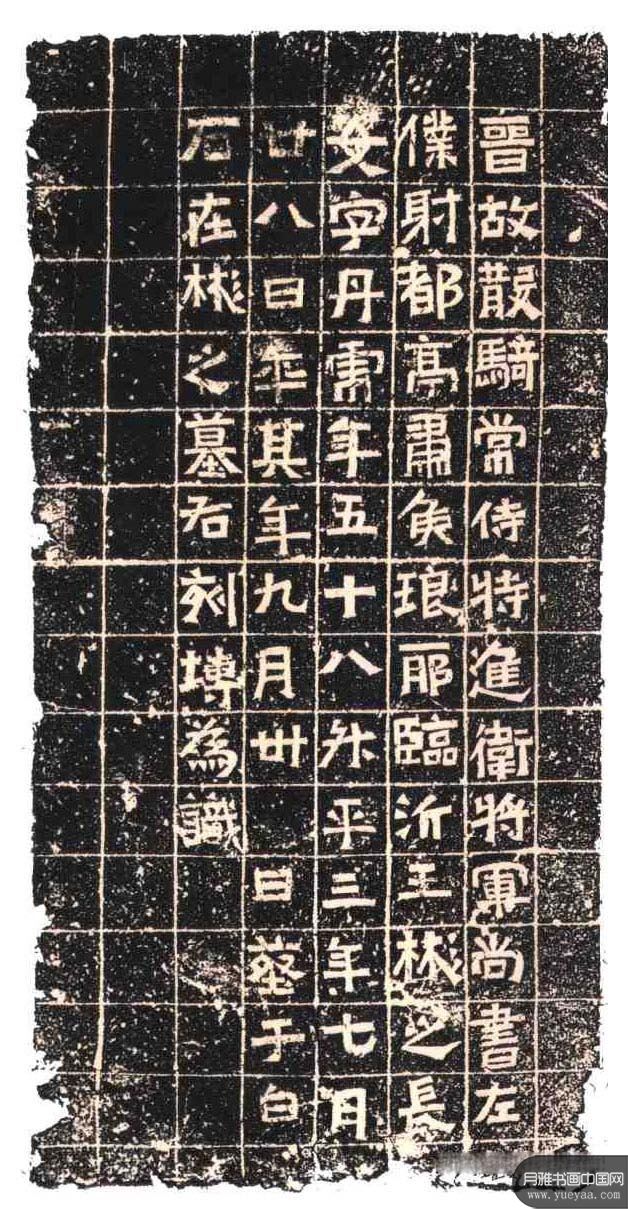 晉故散騎常侍特進衛將軍尚書左
僕射都亭肅侯琅耶臨沂王彬之長
女字丹虎年五十八升平三年七月
廿八日卒其年九月卅日葬于白
石在彬之墓右刻塼為識
月雅书画中国网
www.yueyaa.com